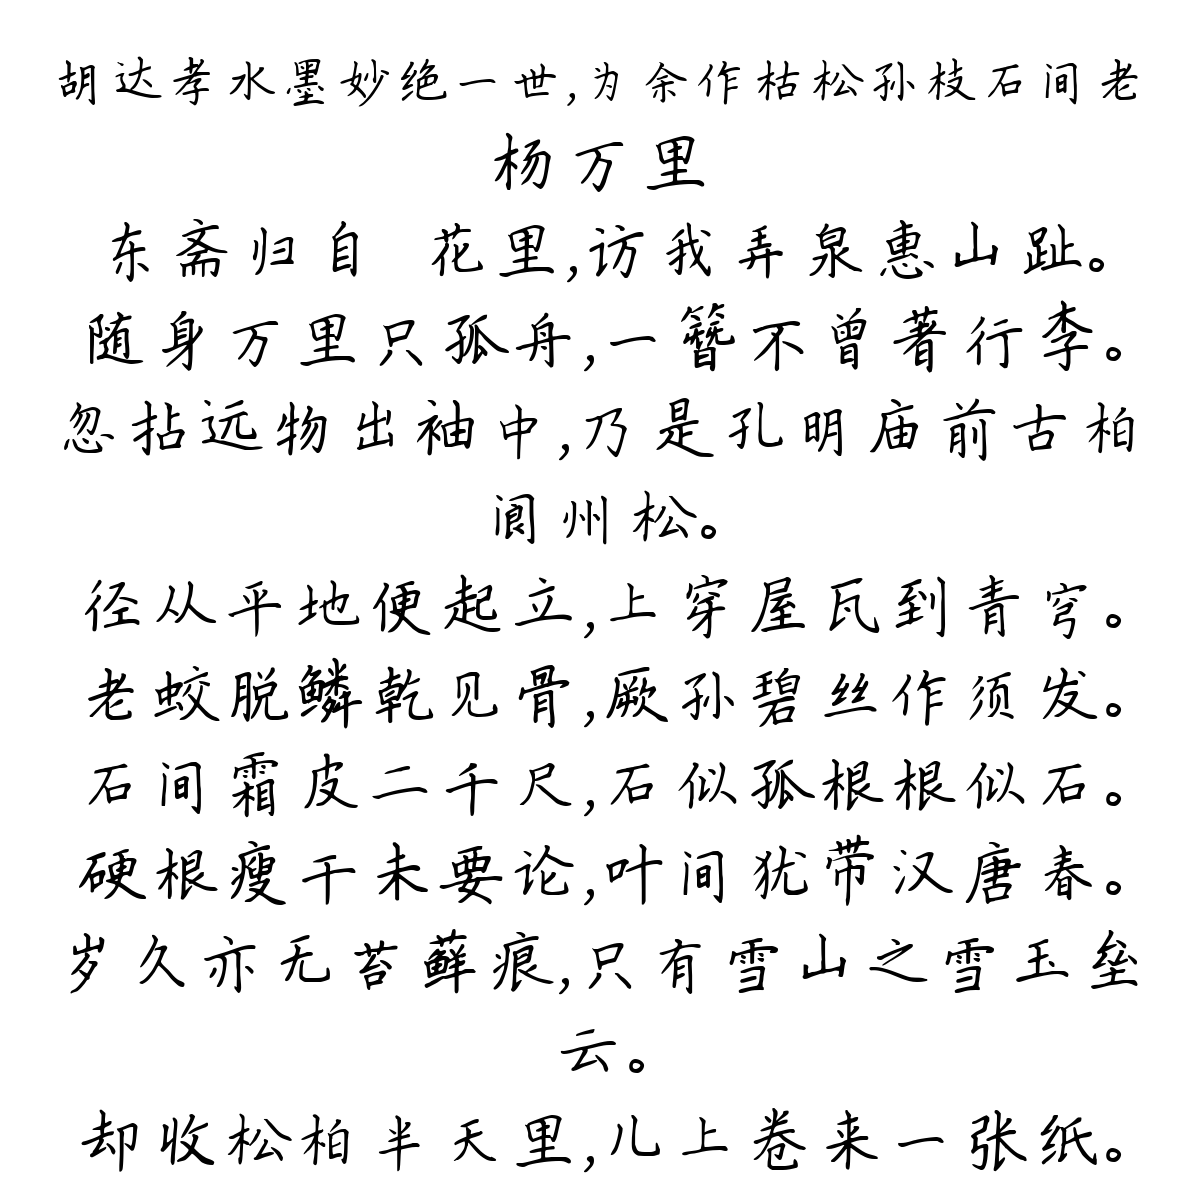 胡达孝水墨妙绝一世,为余作枯松孙枝石间老
杨万里
东斋归自 花里,访我弄泉惠山趾。
随身万里只孤舟,一簪不曾著行李。
忽拈远物出袖中,乃是孔明庙前古柏
阆州松。
径从平地便起立,上穿屋瓦到青穹。
老蛟脱鳞乾见骨,厥孙碧丝作须发。
石间霜皮二千尺,石似孤根根似石。
硬根瘦干未要论,叶间犹带汉唐春。
岁久亦无苔藓痕,只有雪山之雪玉垒
云。
却收松柏半天里,儿上卷来一张纸。